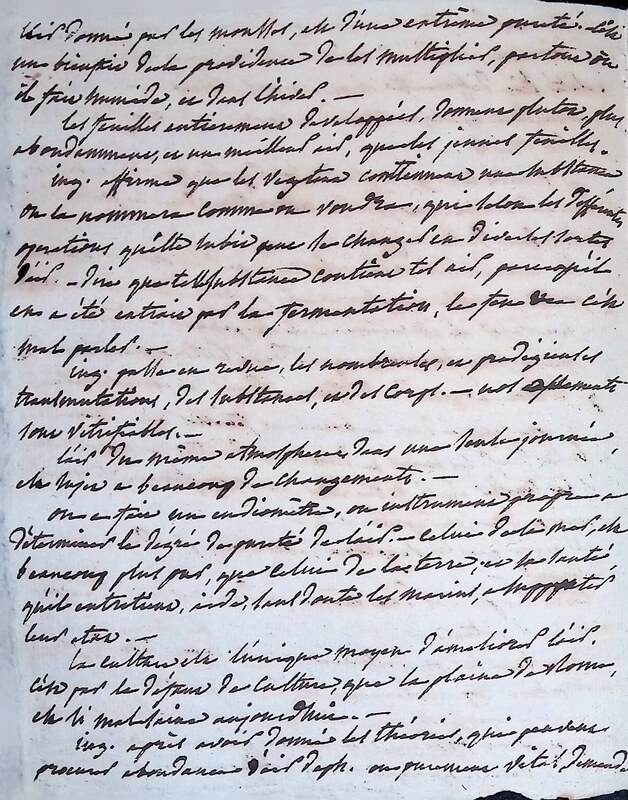 l'air donné par les mousses, est d'une extrême pureté. c'est
un bienfait de la providence de les multiplier, partout où
il fait humide, et dans l'hiver. —
les feuilles entierment developpées, donnent plutôt, plus
abondamment, et un meilleur air, que les jeunes feuilles. —
ing. affirme que les vegetaux contiennent une substance
on la nommera comme on voudra, qui selon les differentes
operations qu'elle subit peut se changer en diverses sortes
d'air. — dire que telle substance contient tel air, parcequ'il
en a été extrait par la fermentation, le feu &c c'est
mal parler. —
ing. passe en revue, les nombreuses, et prodigieuses
transmutations, des substances, et des corps. — nos ossements
sont vitrifiables. —
l'air du même atmosphere, dans une seule journée,
est sujet a beaucoup de changements. —
on a fait un eudiomètre, ou instrument propre a
déterminer le degré de pureté de l'air. — celui de la mer, est
beaucoup plus pur, que celui de la terre, et la santé
qu'il entretient, aide, sans doute les marins, a supporter
leur état. —
la culture est l'unique moyen d'améliorer l'air.
c'est par le défaut de culture, que la plaine de Rome,
est si malsaine aujourdhui. —
ing. après avoir donné les théories, qui peuvent
procurer abondance d'air deph. on purement vital, demande